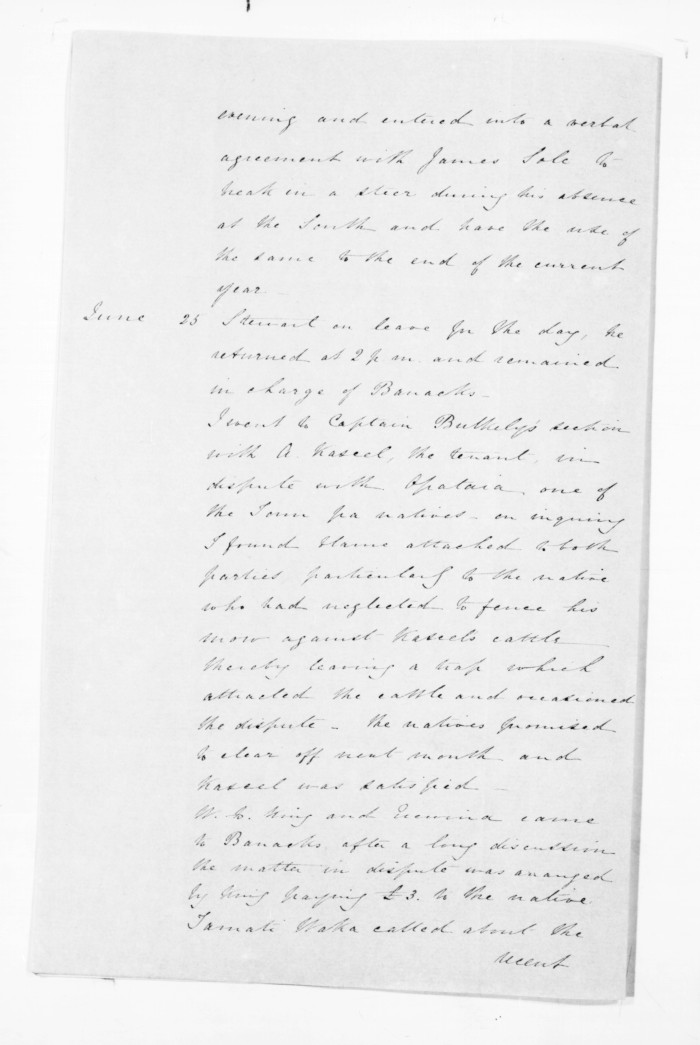 evening and entered into a verbal
agreement with James Sole to
break in a steer during his absence
at the South and have the use of
the same to the end of the current
year –
June 25 Stewart on leave for the day, he
returned at 2 p m. and remained
in charge of Barracks –
I went to Captain Buthely's section
with A. Kaseel, the tenant, in
dispute with Opataia, one of
the Town pa natives – on inquiry
I found blame attached to both
parties, particularly to the native
who had neglected to fence his
mow against Kaseel's cattle
thereby leaving a trap which
attracted the cattle and occasioned
the dispute – the natives promised
to clear off next month and
Kaseel was satisfied –
W. C. King and came
to Barracks, after a long discussion
the matter in dispute was arranged
by King paying £3. to the native
Tamati Waka called about the
recent